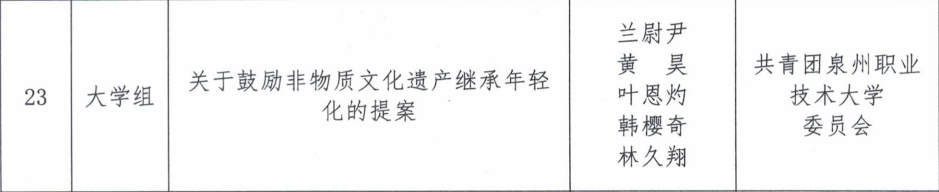 23
大学组
关于鼓励非物质文化遗产继承年轻
化的提案
兰尉尹
黄　昊
叶恩灼
韩樱奇
林久翔
共青团泉州职业
技术大学
委员会